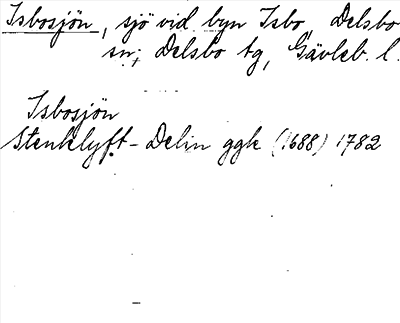 Isbosjön, sjö vid byn Isbo Delsbo
sn; Delsbo tg, Gävleb. l.
Isbosjön
Stenklyft - Delin ggk (1688) 1782